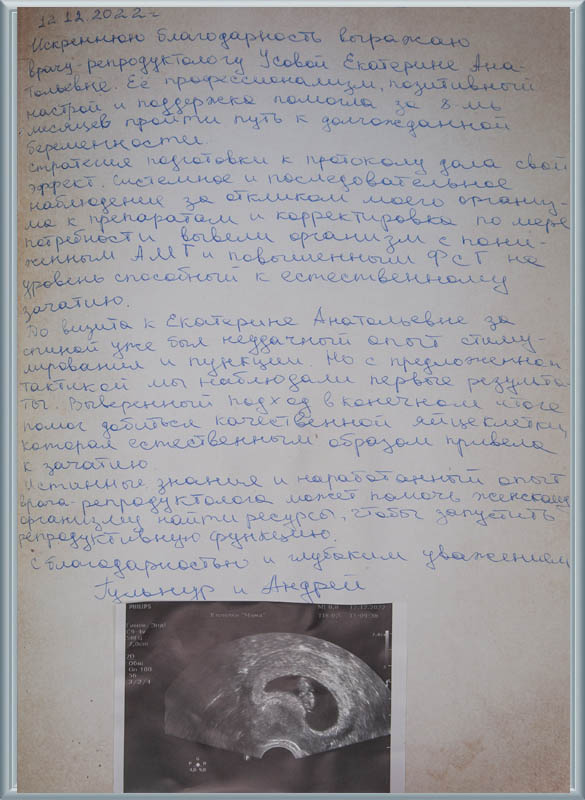 12.12.2022г
Искреннюю благодарность выражаю
врачу-репродуктологу Усовой Екатерине Ана-
тольевне. Её профессионализм, позитивный
настрой и поддержка помогла за 8-мь
месяцев пройти путь к долгожданной
беременности.
Стратегия подготовки к протоколу дала свой
эффект. Системное и последовательное
наблюдение за откликом моего организ-
ма к препаратам и корректировка по мере
потребности вывели организм с пони-
женным АМГ и повышенным ФСГ на
уровень способный к естественному
зачатию.
До визита к Екатерине Анатольевне за
спиной уже был неудачный опыт стиму-
лирования и пункции. Но с предложенной
тактикой мы наблюдали первые результа-
ты. Выверенный подход в конечном итоге
помог добиться качественной яйцеклетки,
которая естественным образом привела
к зачатию.
Истинные знания и наработанный опыт
врача-репродуктолога может помочь женскому
организму найти ресурсы, чтобы запустить
репродуктивную функцию.
С благодарностью и глубоким уважением
Гульнур и Андрей
PHILIPS
MI 0.8 12.12.2022
Клиника "Мама"
Гинек/Энд/
C9-4v
54Гц
7,0cm
2D
Общ
Gn 100
56
3/2/4